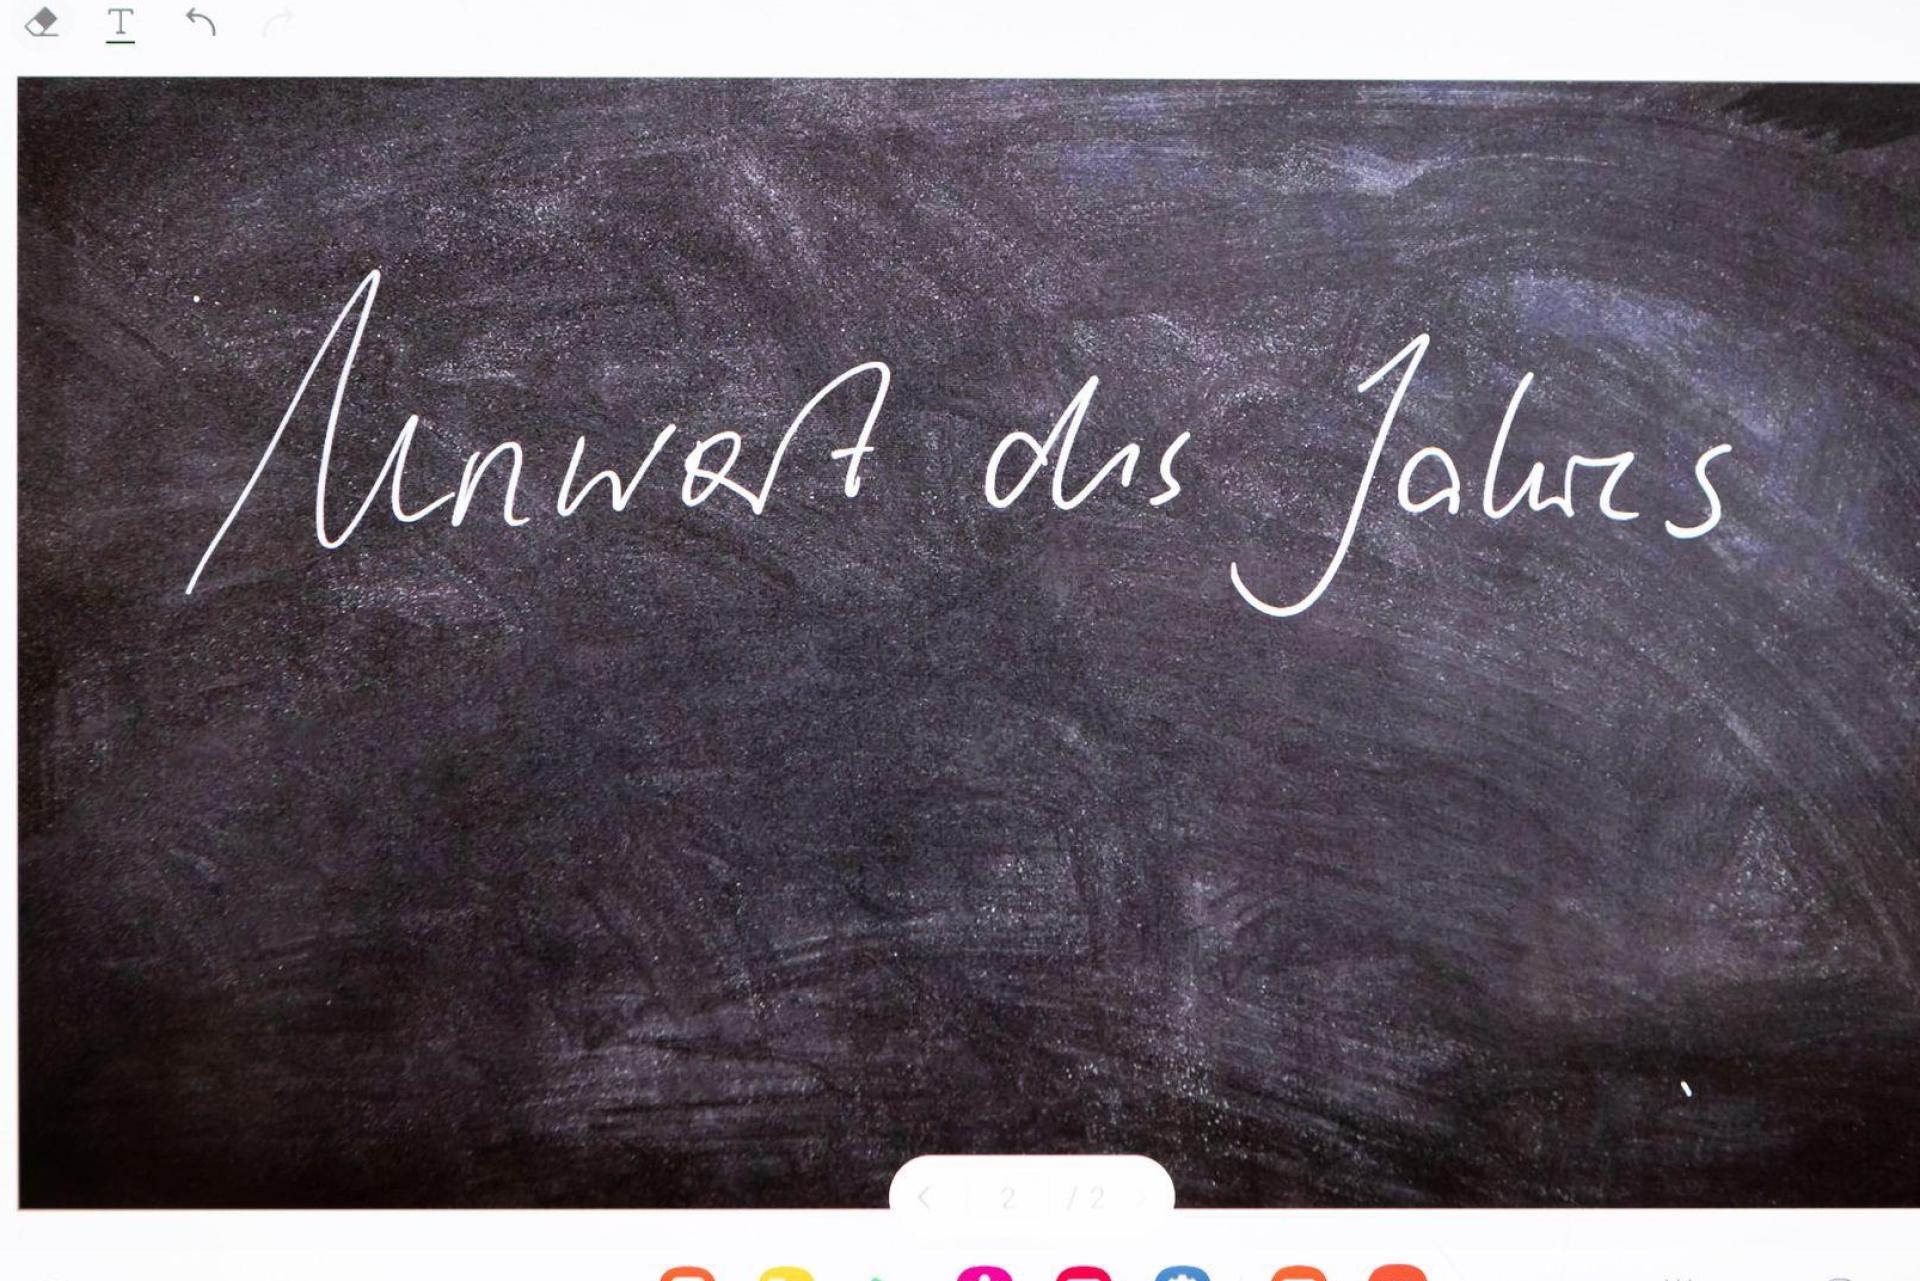 T
Unwort des Jahres
2 / 2